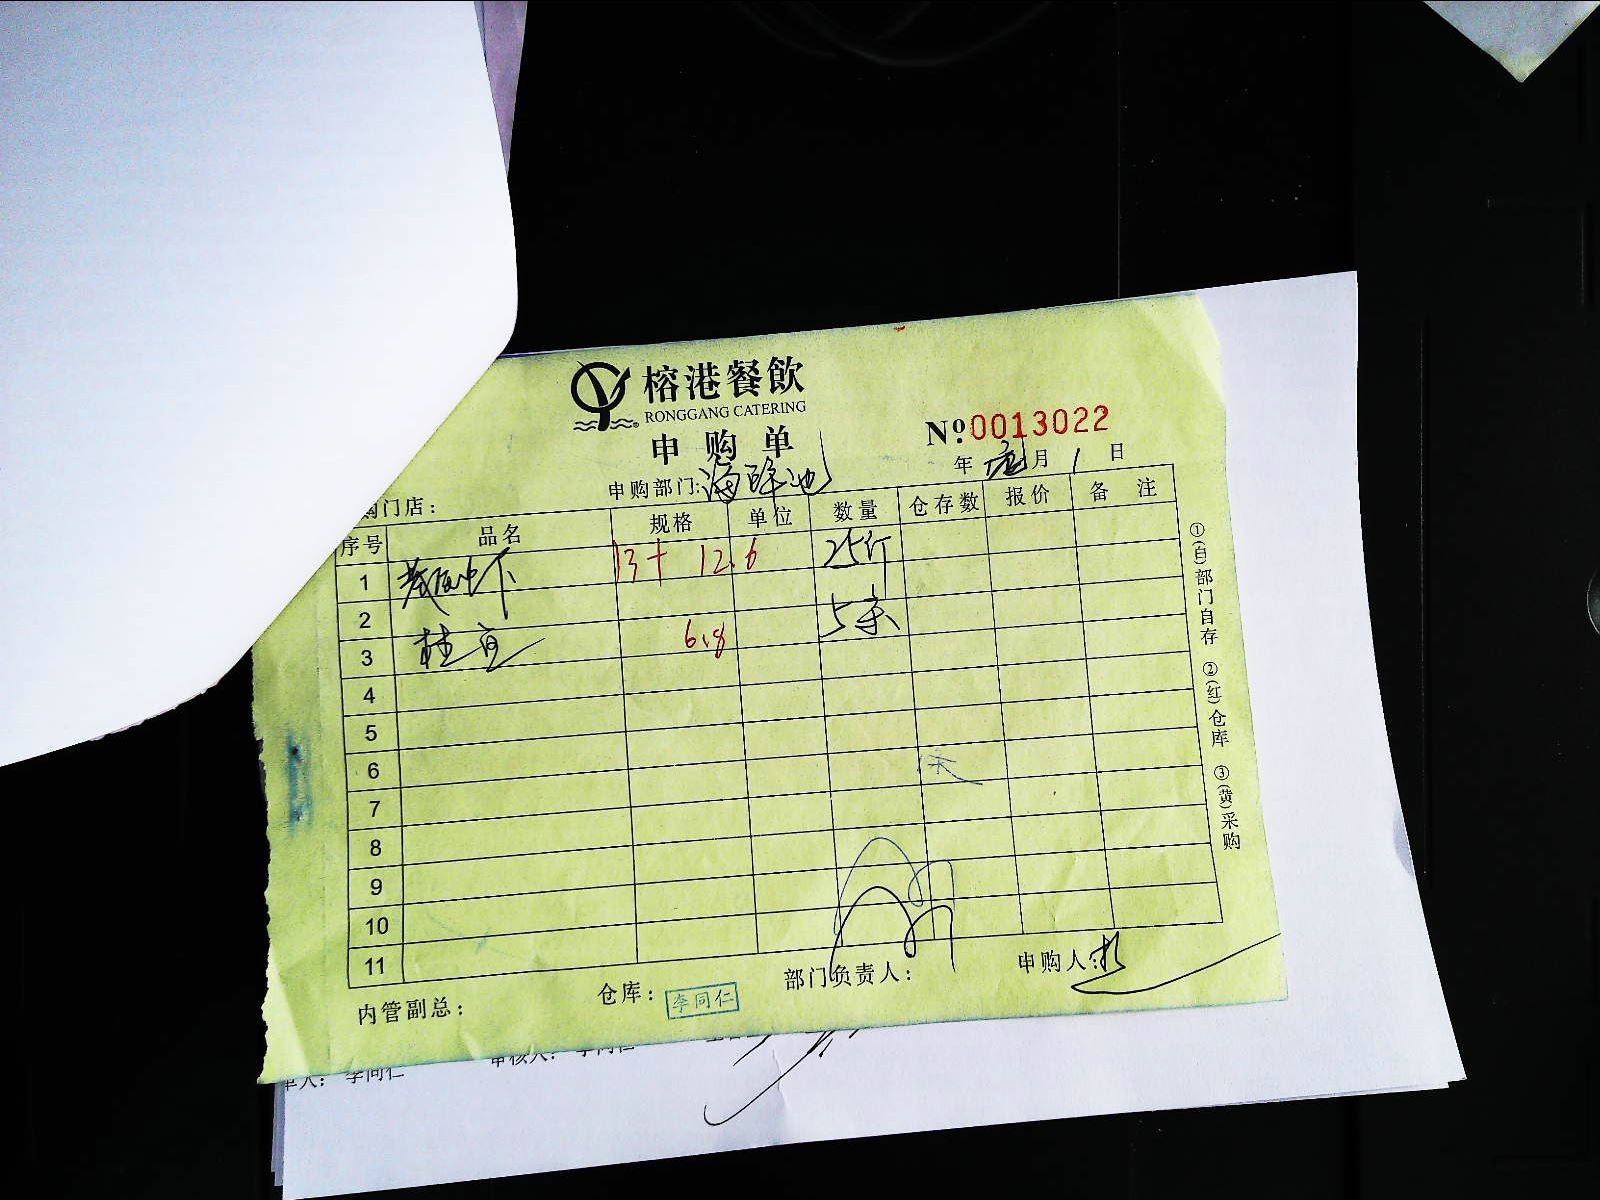 榕港餐飲
RONGGANG CATERING
申购单
№0013022
年 月 1 日
申购部门:海鲜池
购门店:
序号 品名 规格 单位 数量 仓存数 报价 备注
1 13+ 12.6 25斤
2 5条
3 桂鱼 6.8
4
5
6
7
8
9
10
11
①(白)部门自存 ②(红)仓库 ③(黄)采购
内管副总: 仓库: 李同仁 部门负责人: 申购人:
单人: 李同仁 审核人: 李同仁